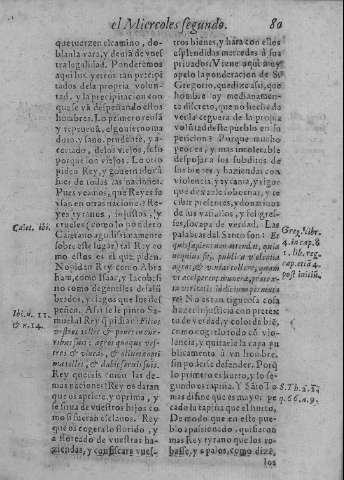 el Miercoles segundo. 80
que tuerzen el camino, do-
blan la vara, y desdizē de vues
tra legalidad. Ponderemos
aqui los yerros tan precipi
tados de la propria volun-
tad, y la precipitacion con
que se vā despeñando estos
hombres. Lo primero
y reprueuā, el gouierno ma
duro, y sano, prudente, y a-
certado, de los viejos, solo
porque son viejos. Lo otro
piden Rey, y gouernadorà
fuer de todas las naciones.
Pues veamos, que Reyes se
vsan en otras naciones? Re-
yes tyranos, injustos, y
crueles (como lo ponderò
Cayetano agudissimamente
sobre esse lugar) tal Rey co
mo estos es el que piden.
No pidan Rey como Abra
ham, como Isaac, y Iacob: si
no como
bridos, y lagos que los des
peñen. Assi se le pintò Sa-
muel al Rey q̄ pidiā: Filios
vestros tollet & ponet in curri-
ribus suis: agros quoque ves-
tros & vineas, & oliueta opti
ma tollet, & dabit seruis suis.
Rey quereis como las de-
mas naciones? Rey os daran
que os apriete, y oprima, y
se sirua de vuestros hijos co
mo si fueran esclauos. Rey
que os cogera lo florido, y
a floreado de vuestras ha-
ziendas, y confiscara vues-
tros bienes, y harà con ellos
esplendidas mercedes à sus
priuados. Viene aqui muy
a pelo la ponderacion de S.
Gregorio, que dize assi, que
hombre ay medianamen-
te discreto, que no heche de
ver la ceguera de la propia
voluntad deste pueblo en su
peticion? Porque mucho
peor es, y mas intolerable
despojar a los subditos de
sus bienes, y haziendas con
violencia, y tyrania, y rigor
que dexarse cohechar, y re-
cibir presentes, y donatiuos
de sus vassallos, y feligre-
ses, so capa de verdad. Las
palabras del Santo son: Et
quis sapientum attendat, quia
nequius sit, populi violenter
agros, & vineas tollere, quam
ve accipere munera, præ tex-
ta veritatis iudicium peruerte-
re? No es tan rigurosa cosa
hazer injusticia con pretex-
to de verdad, y color de biē,
como cogerlo todo cō vio-
lencia, y quitarle la capa pu
blicamente à vn hombre,
sin poderse defender. Porq̄
lo primero es hurto, y lo se-
gundo es rapiña. Y Sāto To
mas dize que es mayor pe
cado la rapiña que el hurto.
De modo que en esto pue-
blo apassionado, quisieron
mas Rey tyrano que los ro-
basse, y a palos, como dizē,
los
Caiet. ibi.
Ibi. n. 11.
& n. 14.
Greg. libr.
4. in cap. 8
1. lib. reg.
cap. citā 4
post initiū.
S. Th. 2. 2.
q. 66. a. 9.